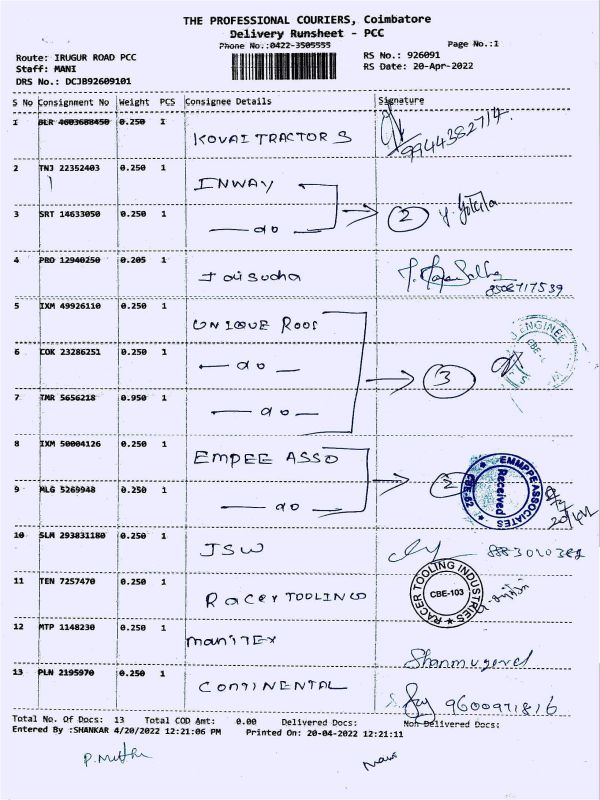 THE PROFESSIONAL COURIERS, Coimbatore
Delivery Runsheet - PCC
Phone No.:0422-3505555
Page No.:1
Route: IRUGUR ROAD PCC
RS No.: 926091
Staff: MANI
RS Date: 20-Apr-2022
DRS No.: DCJB92609101
S No Consignment No Weight PCS Consignee Details Signature
1 BLR 4603688450 0.250 1 KOVAI TRACTORS 9944382714
2 TNJ 22352403 0.250 1 INWAY
3 SRT 14633050 0.250 1 do 2
4 PRO 12940250 0.205 1 Jaisudha 8508717539
5 IXM 49926110 0.250 1 UNIQUE Roof
6 COK 23286251 0.250 1 do
7 TMR 5656218 0.950 1 do 3
8 IXM 50004126 0.250 1 EMPEE ASSO
9 MLG 5269948 0.250 1 do 2
EMMPPE ASSOCIATES
Received
CBE-62
10 SLM 293831180 0.250 1 JSW
11 TEN 7257470 0.250 1 Racer TOOLING
RACER TOOLING INDUSTRIES
CBE-103
12 MTP 1148230 0.250 1 maniTEX Shanmugavel
13 PLN 2195970 0.250 1 CONTINENTAL 9600971816
Total No. Of Docs: 13 Total COD Amt: 0.00 Delivered Docs: Non Delivered Docs:
Entered By :SHANKAR 4/20/2022 12:21:06 PM Printed On: 20-04-2022 12:21:11